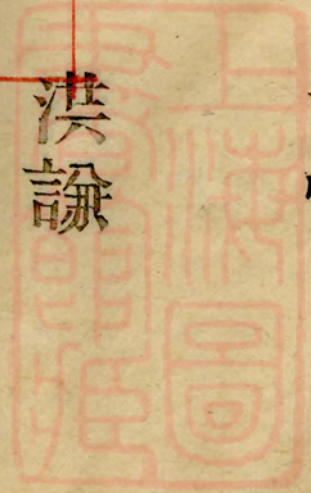 洪謙
上海圖
書館藏